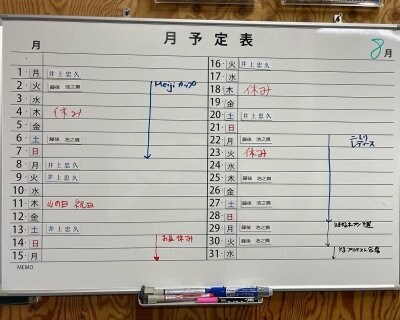 月 月予定表 8月
1 月 井上忠久
2 火 藤後 浩之貴 Meiji カップ
3 水
4 木 休み
5 金
6 土 藤後 浩之貴
7 日
8 月 井上忠久
9 火 井上忠久
10 水
11 木 山の日 祝日
12 金
13 土 井上忠久
14 日 お盆休み
15 月
MEMO
16 火 井上忠久
17 水
18 木 休み
19 金
20 土 井上忠久
21 日
22 月 藤後 浩之貴 ニトリレディース
23 火 休み
24 水
25 木 藤後 浩之貴
26 金
27 土 藤後 浩之貴
28 日
29 月 藤後 浩之貴
30 火 藤後 浩之貴
31 水